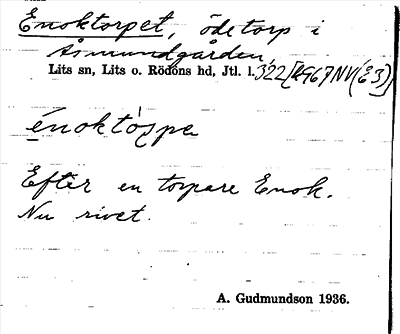 Enoktorpet, ödetorp i
Åsmundgården,
Lits sn, Lits o. Rödöns hd, Jtl. l. 322 [2967 NV(E3)]
énoktòrpe
Efter en torpare Enok.
Nu rivet.
A. Gudmundson 1936.